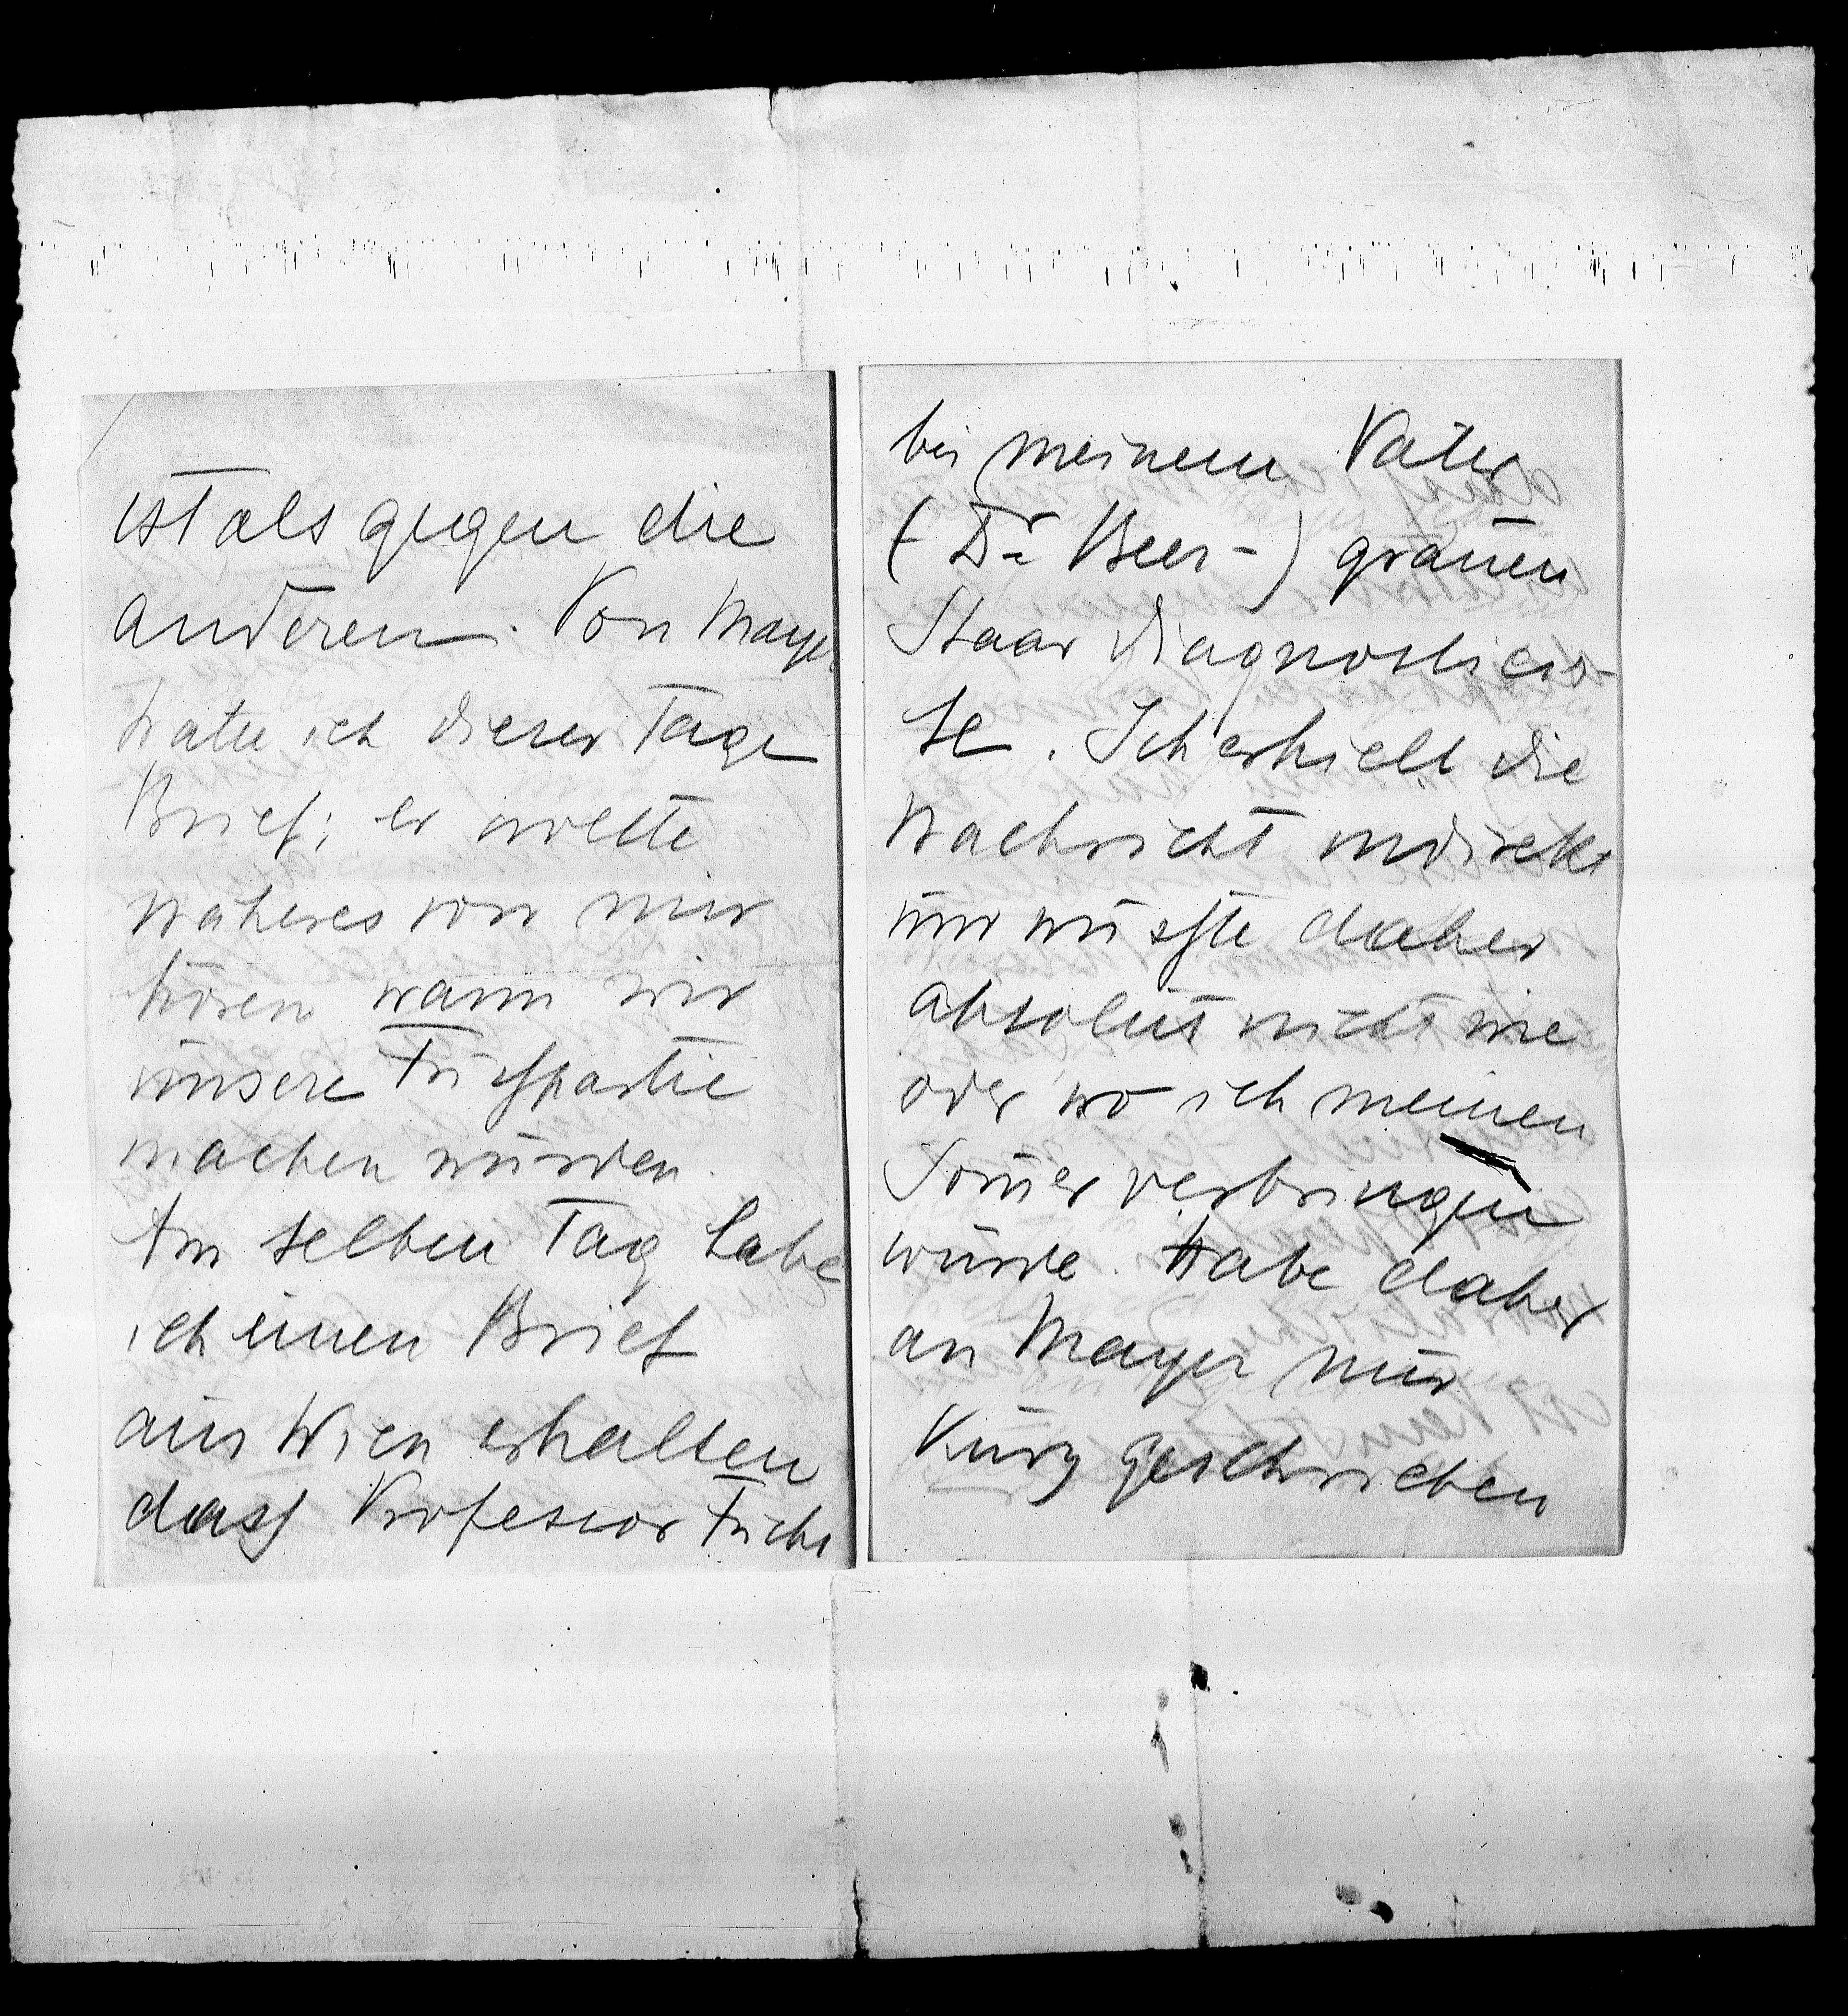 ist als gegen die
anderen. Von Mayer
hatte ich dieser Tage
Brief; er wollte
Näheres von mir
hören wann wir
unsere Fußpartie
machen würden.
Am selben Tag habe
ich einen Brief
aus Wien erhalten
dass Professor Fuchs
bei meinem Vater
(Dr Beer-) grauen
Staar diagnosticir-
te. Ich erhielt die
Nachricht indirekt
und wusste daher
absolut nicht wie
oder wo ich meinen
Som̄er verbringen
würde. Habe daher
an Mayer nur
kurz geschrieben